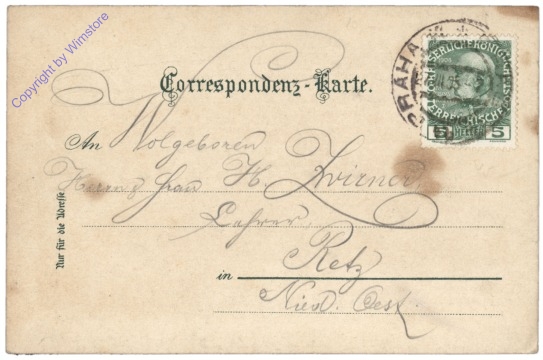 Copyright by Wimstore
PRAHA
KAISERLICHE KÖNIGLICHE
ÖSTERREICHISCHE
5 HELLER 5
Correspondenz-Karte.
An Wolgeboren
Herrn & Frau H Zwirner
Lehrer
in Retz
Nied. Oest.
Nur für die Adresse